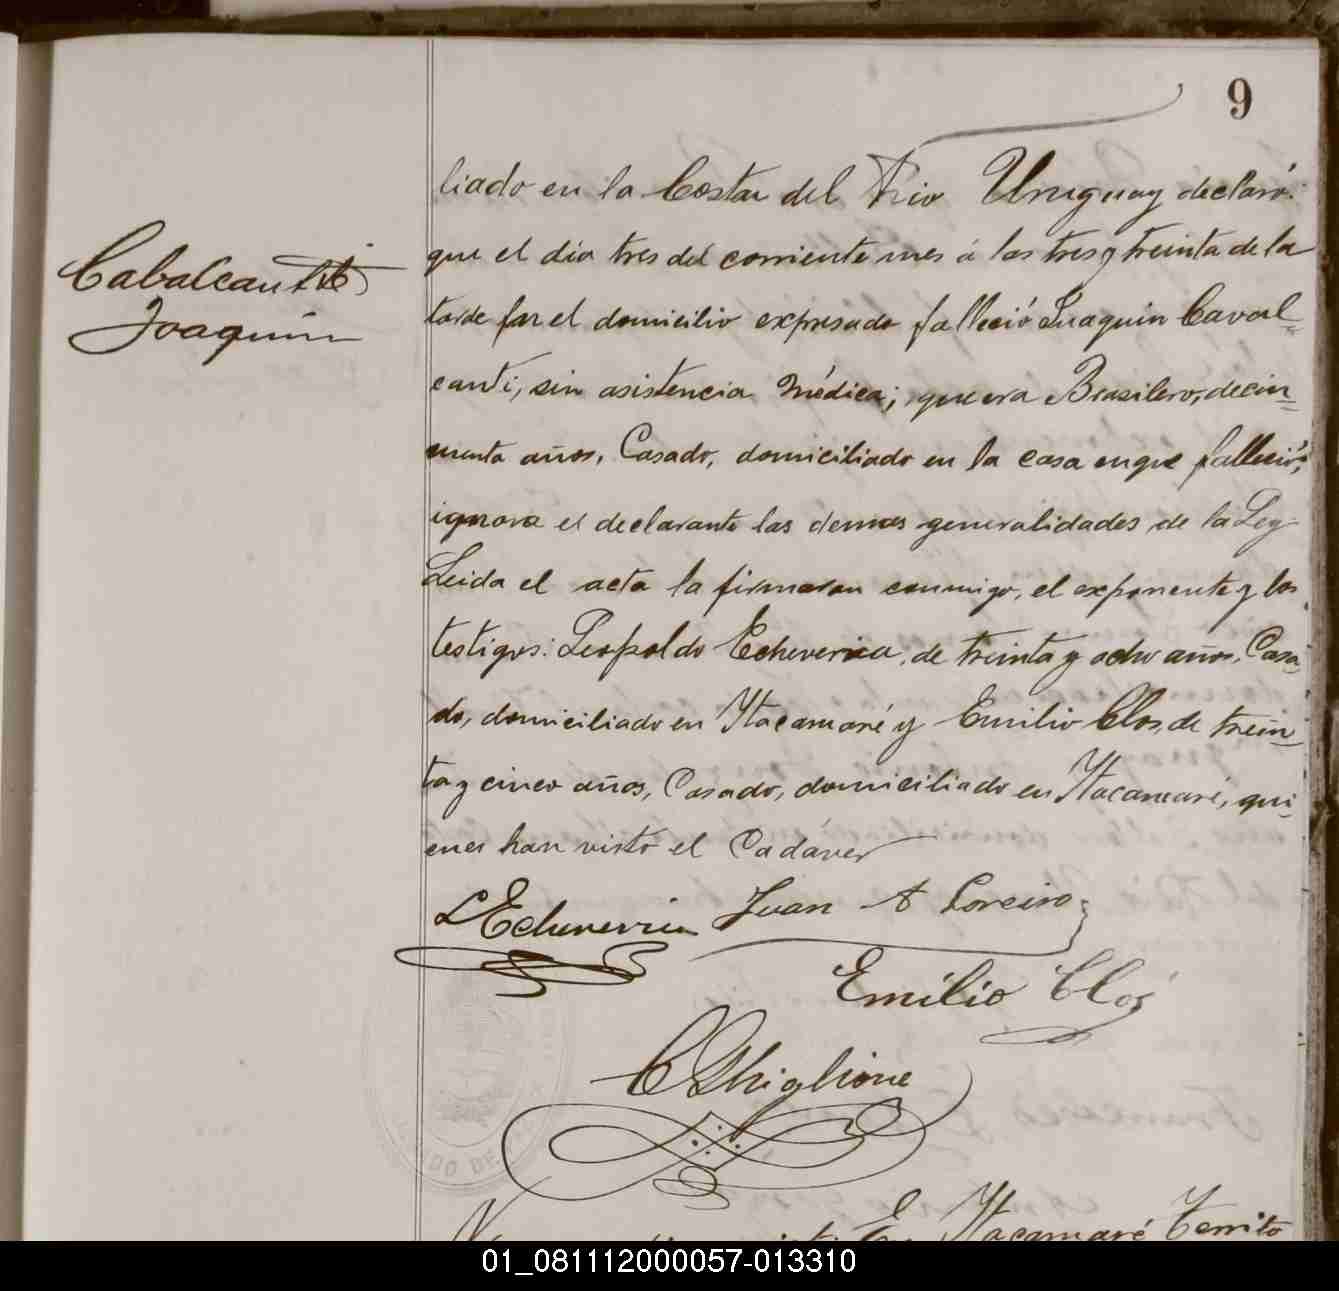 9
liado en la Costa del Rio Uruguay declaró:
que el día tres del corriente mes á las tres y treinta de la
Cabalcanti
Joaquin
tarde en el domicilio expresado falleció Juaquin Caval=
canti, sin asistencia médica; que era Brasilero, de cin=
cuenta años, Casado, domiciliado en la casa en que falleció,
ignora el declarante las demas generalidades de la Ley
Leida el acta la firmaron conmigo, el exponente y los
testigos: Leopoldo Echeverria, de treinta y ocho años, Casa-
do, domiciliado en Itacamaré y Emilio Clos, de trein-
ta y cinco años, Casado, domiciliado en Itacamaré, qui-
enes han visto el Cadáver
L Echeverria Juan A Loreiro
Emilio Clos
C Ghiglione
En Itacamaré Territo
01_081112000057-013310